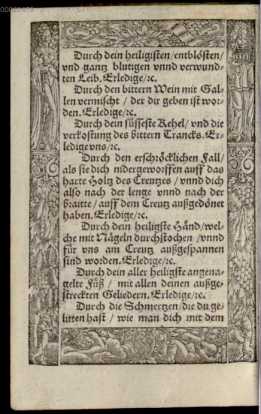 Durch dein heiligisten/entblösten/
vnd gantz blutigen vnnd verwund-
ten Leib. Erledige/ꝛc.
Durch den bittern Wein mit Gal-
len vermischt / der dir geben ist wor-
den. Erledige/ꝛc.
Durch dein süsseste Kehel/ vnd die
verkostung des bittern Trancks. Er-
ledige vns/ꝛc.
Durch den erschröcklichen Fall/
als sie dich nidergeworffen auff das
harte Holtz des Creutzes / vnnd dich
also nach der lenge vnnd nach der
braitte / auff dem Creutz außgedönet
haben. Erledige/ꝛc.
Durch dein heiligste Händ/wel-
che mit Nägeln durchstochen /vnnd
für vns am Creutz außgespannen
sind worden. Erledige/ꝛc.
Durch dein aller heiligste angena-
gelte Füß / mit allen deinen außge-
streckten Geliedern. Erledige/ꝛc.
Durch die Schmertzen/die du ge-
litten hast / wie man dich mit dem